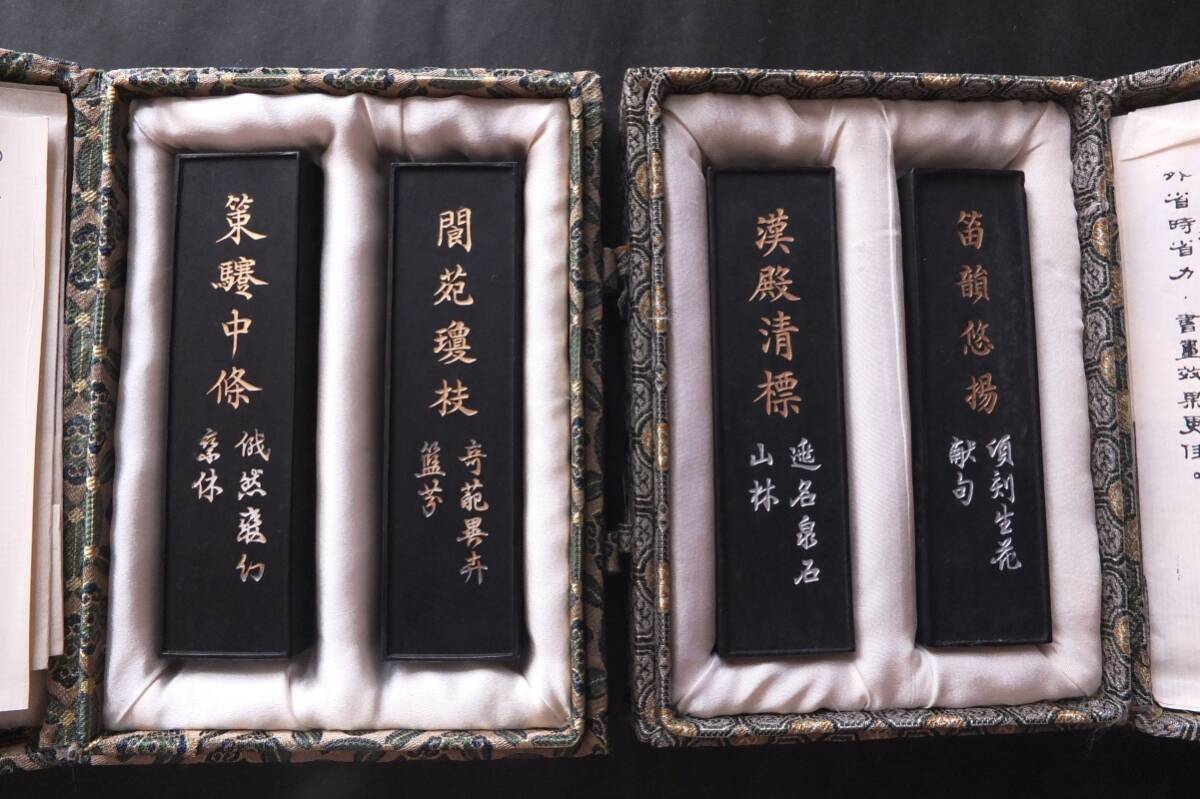 外省時省力．書畫效果更佳。
笛韻悠揚
頃刻生花
献句
漢殿清標
逃名泉石
山林
閬苑瓊枝
奇葩異卉
籃芳
策中條
然變幻
休